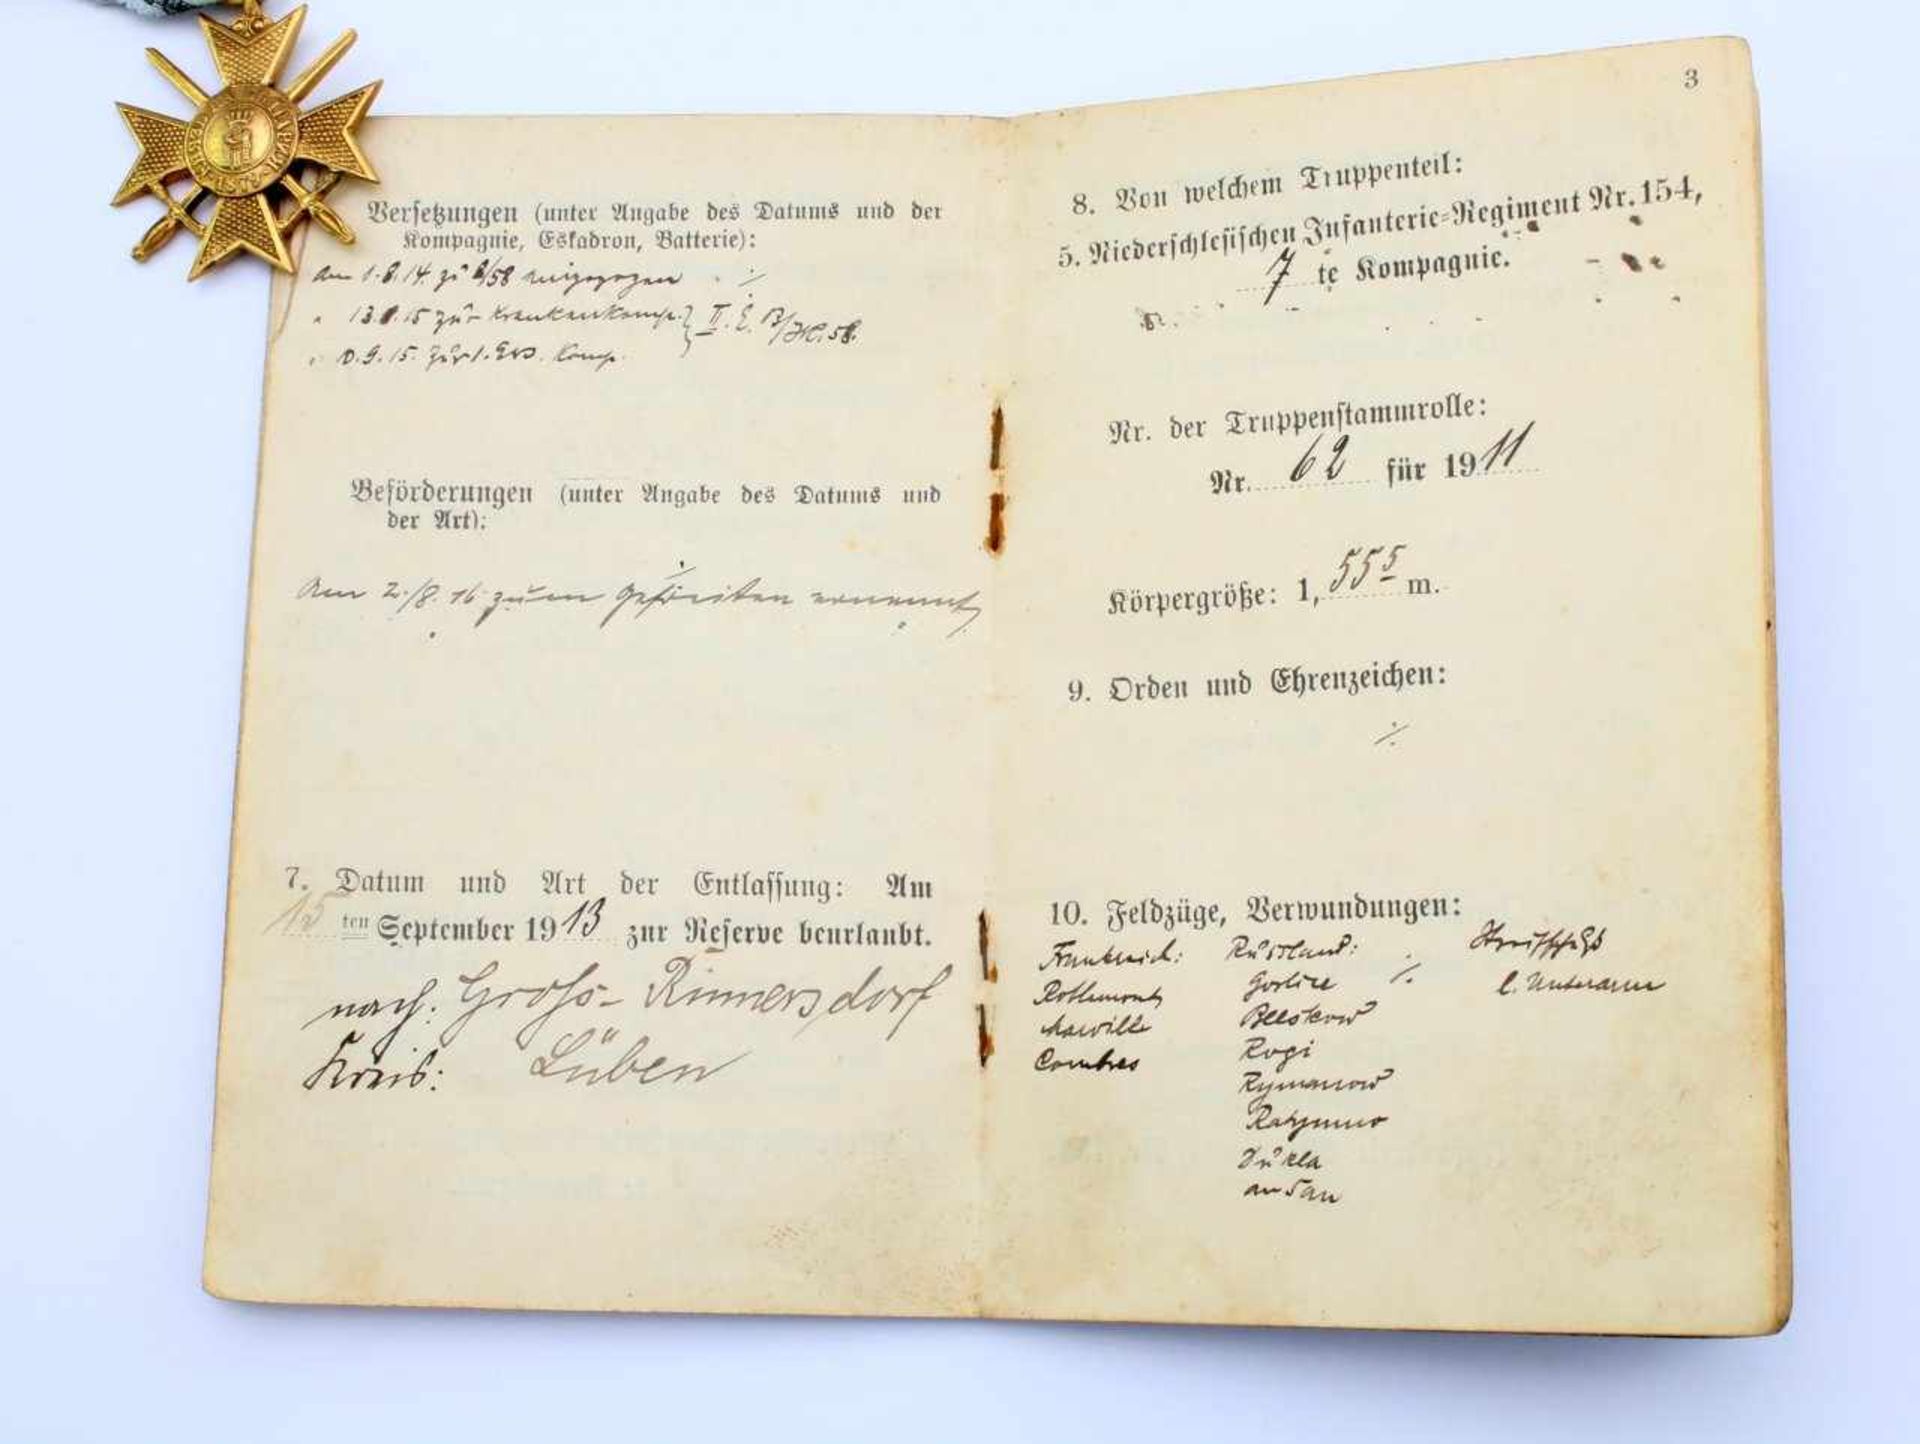 Versetzungen (unter Angabe des Datums und der
Kompagnie, Eskadron, Batterie):
Am 1.8.14. zu 8/58 eingezogen ./.
" 13.8.15 zur Krankenkomp. } II. E. B/JR. 58.
" 9.15. zur 1. Ers. Komp.
Beförderungen (unter Angabe des Datums und
der Art):
Am 2./8. 16 zum Gefreiten ernannt
7. Datum und Art der Entlassung: Am
15ten September 1913 zur Reserve beurlaubt.
nach: Groß-Rinnersdorf
Kreis: Lüben
3
8. Von welchem Truppenteil:
5. Niederschlesischen Infanterie-Regiment Nr. 154,
7 te Kompagnie.
Nr. der Truppenstammrolle:
Nr. 62 für 1911
Körpergröße: 1,555 m.
9. Orden und Ehrenzeichen:
./.
10. Feldzüge, Verwundungen:
Frankreich: Russland: Streifschuß
Gorlice ./. l. Unterarm
Combres Rogi
Rymanow
Dukla
am San